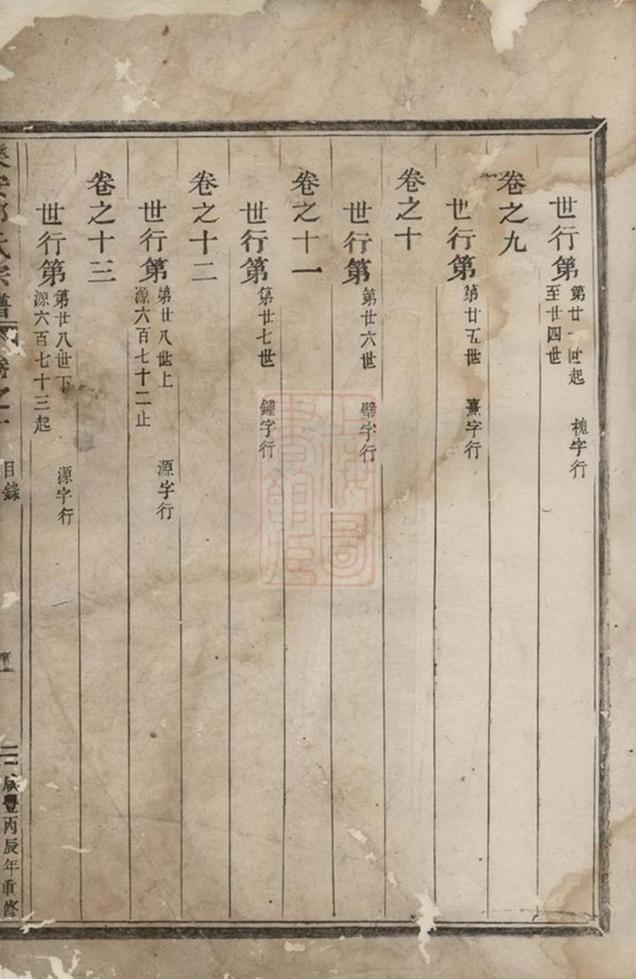 世行第 第廿一世起 槐字行
至廿四世
卷之九
世行第 第廿五世 熹字行
卷之十
世行第 第廿六世 壁字行
卷之十一
世行第 第廿七世 鍾字行
卷之十二
世行第 第廿八世上 源字行
源六百七十二止
卷之十三
世行第 第廿八世下 源字行
源六百七十三起
安 氏宗譜 卷之 目錄
咸豐丙辰年重修